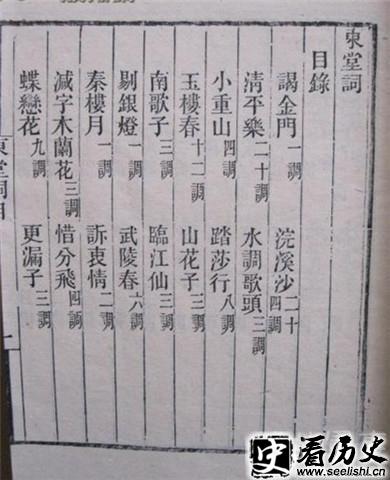 東堂詞
目錄
謁金門一調 浣溪沙二十四調
清平樂二十調 水調歌頭三調
小重山四調 踏莎行八調
玉樓春十二調 山花子三調
南歌子三調 臨江仙三調
剔銀燈一調 武陵春六調
秦樓月一調 訴衷情二調
減字木蘭花三調 惜分飛四調
蝶戀花九調 更漏子三調
東堂詞目
一
史看历史
www.seelishi.cn